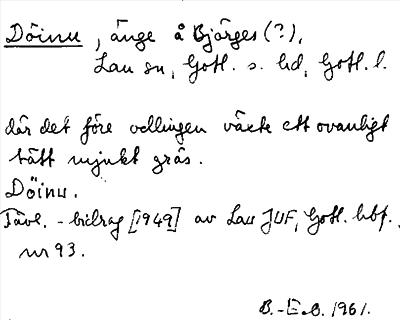 Döinu, änge å Bjärges (?),
Lau sn, Gotl. s. hd, Gotl. l.
där det före odlingen växte ett ovanligt
tätt mjukt gräs.
Döinu.
Tävl.-bidrag [1949] av Lau JUF, Gotl. hbf.
nr 93.
B.-E.B. 1961.